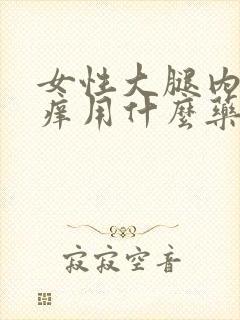 女性大腿内
痒用什麼藥
寂寂空音